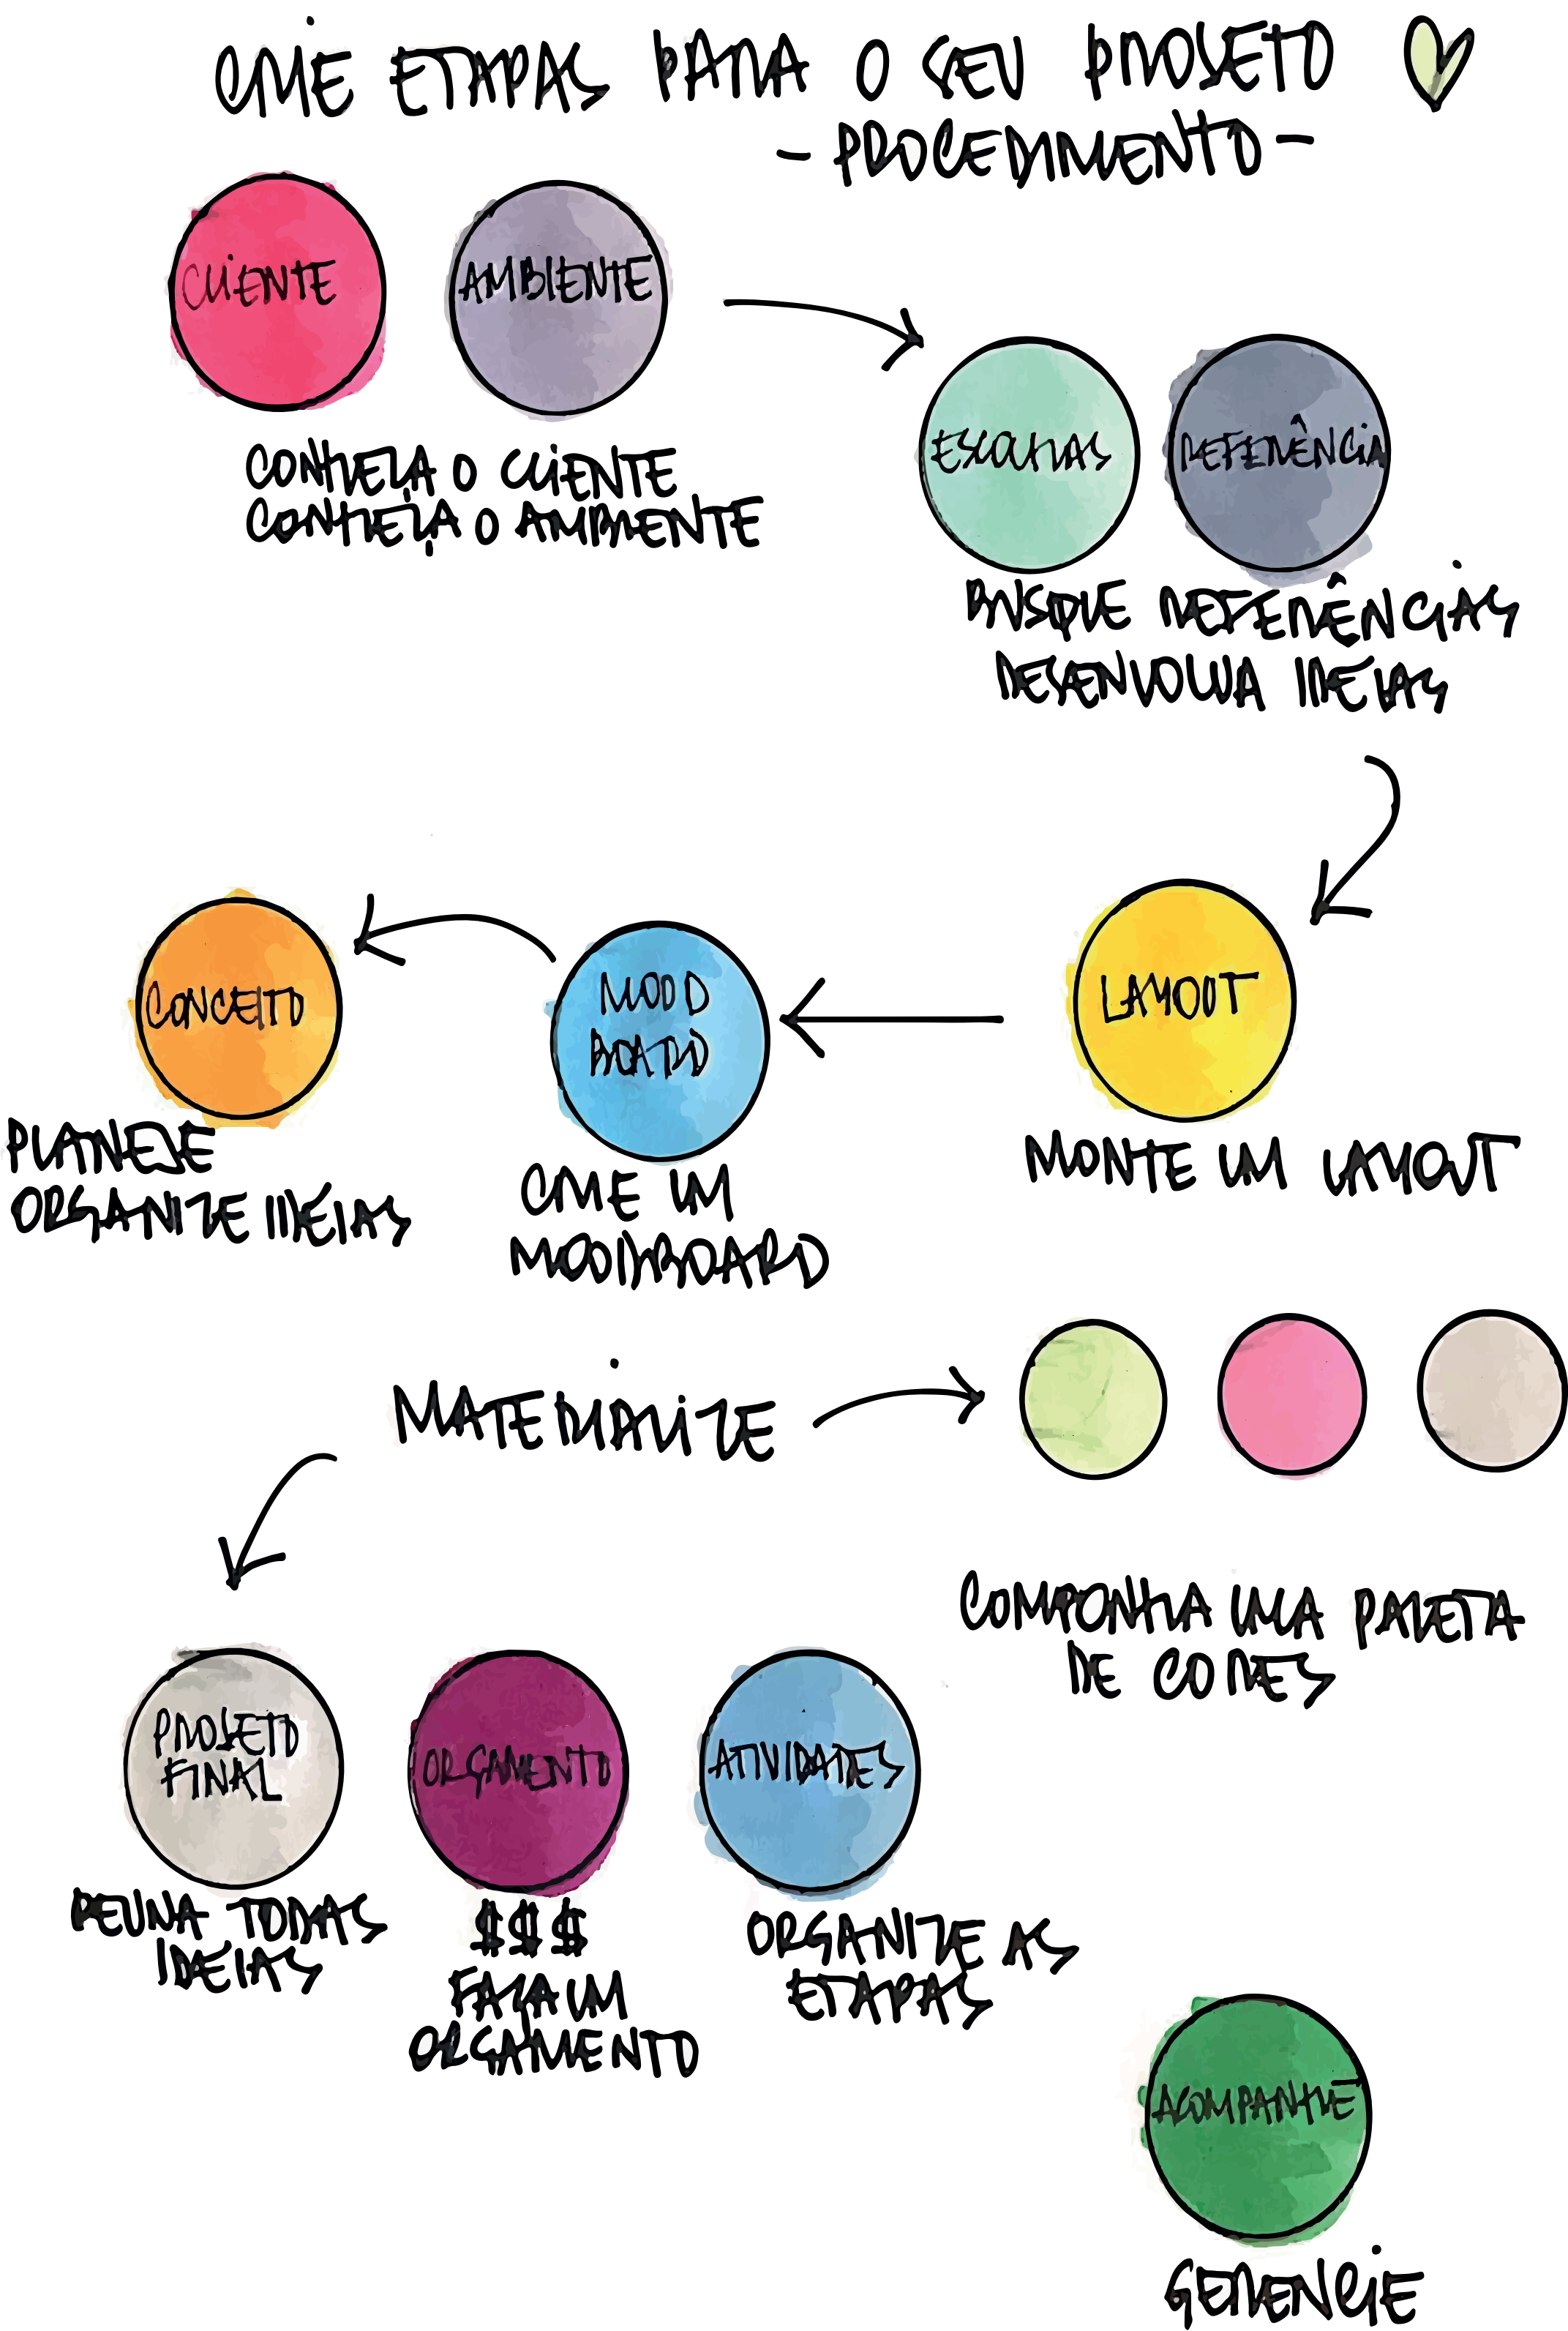 CRIE ETAPAS PARA O SEU PROJETO
- PROCEDIMENTO -
CLIENTE
AMBIENTE
CONHEÇA O CLIENTE
CONHEÇA O AMBIENTE
ESCOLHAS
REFERÊNCIA
BUSQUE REFERÊNCIAS
DESENVOLVA IDEIAS
LAYOUT
MONTE UM LAYOUT
MOOD
BOARD
CRIE UM
MOODBOARD
CONCEITO
PLANEJE
ORGANIZE IDEIAS
MATERIALIZE
COMPONHA UMA PALETA
DE CORES
PROJETO
FINAL
REUNA TODAS
IDEIAS
ORÇAMENTO
$$$
FAÇA UM
ORÇAMENTO
ATIVIDADES
ORGANIZE AS
ETAPAS
ACOMPANHE
GERENCIE